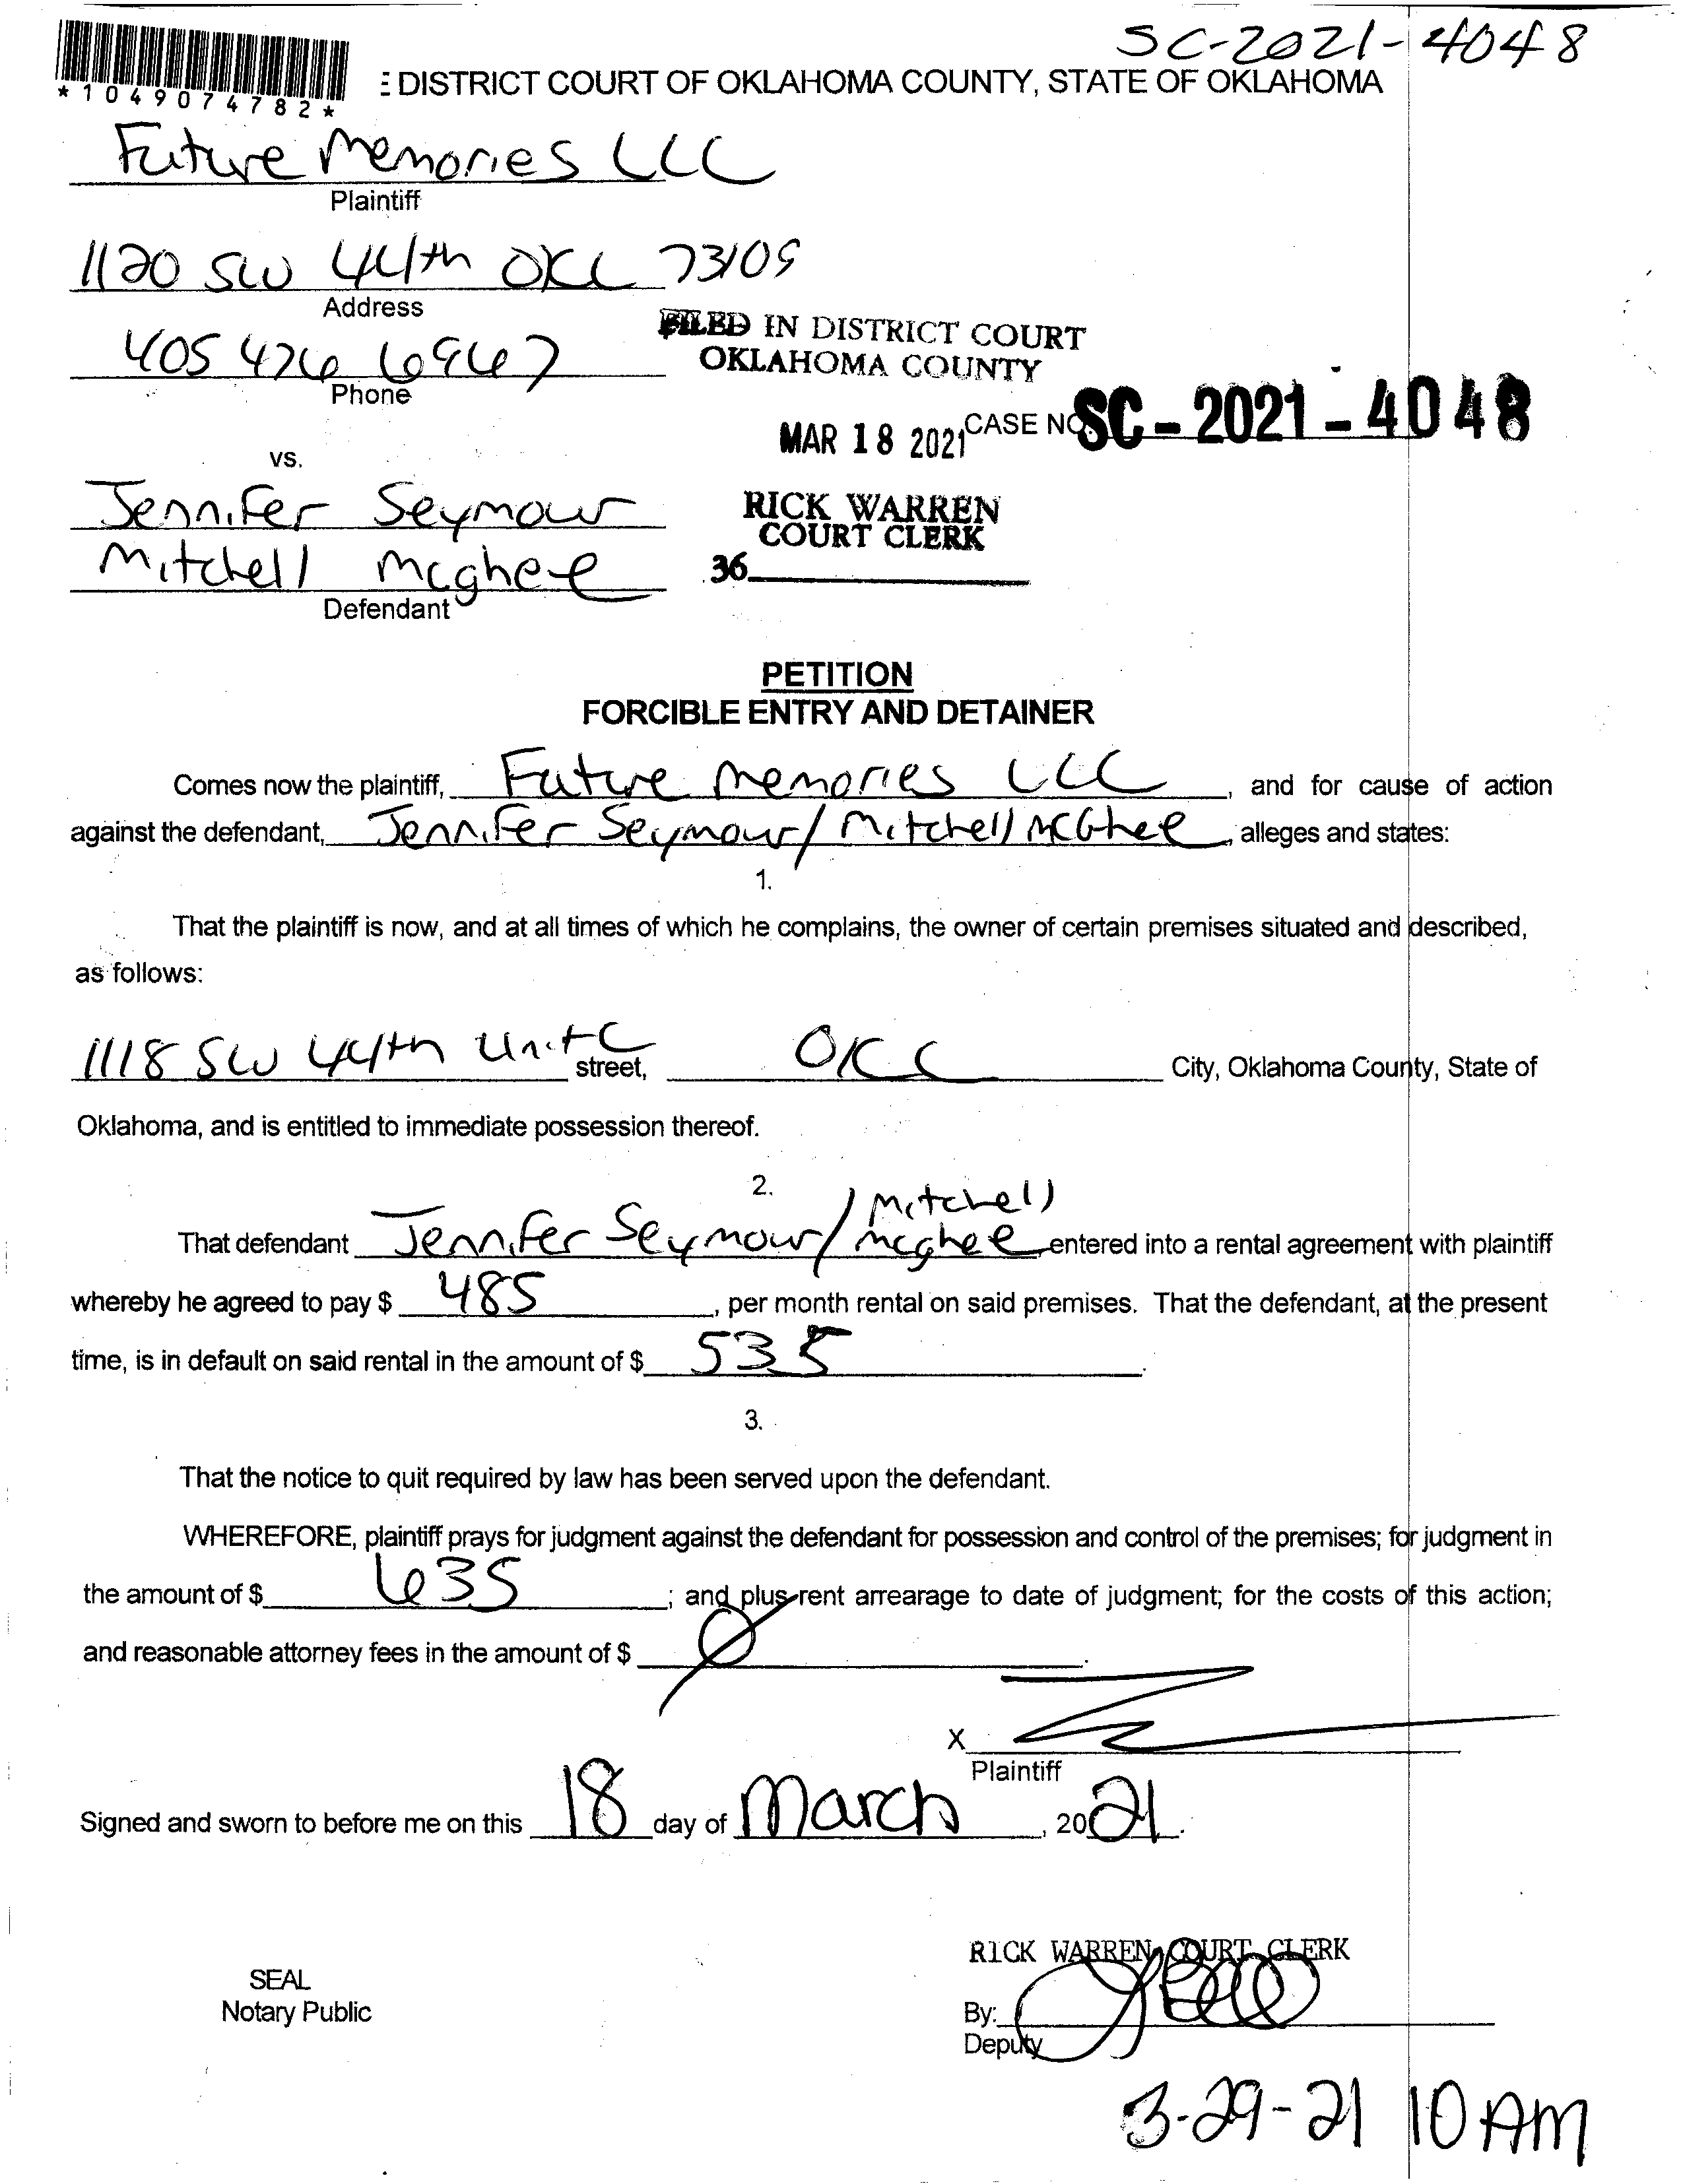 SC-2021-4048
*1049074782*
E DISTRICT COURT OF OKLAHOMA COUNTY, STATE OF OKLAHOMA
Future Memories LLC
Plaintiff
1120 SW 44th OKC 73109
Address
405 476 6967
Phone
FILED IN DISTRICT COURT
OKLAHOMA COUNTY
MAR 18 2021
CASE NO. SC-2021-4048
vs.
Jennifer Seymour
Mitchell Mcghee
Defendant
RICK WARREN
COURT CLERK
36
PETITION
FORCIBLE ENTRY AND DETAINER
Comes now the plaintiff, Future Memories LLC, and for cause of action
against the defendant, Jennifer Seymour/ Mitchell McGhee, alleges and states:
1.
That the plaintiff is now, and at all times of which he complains, the owner of certain premises situated and described,
as follows:
1118 SW 44th Unit C street, OKC City, Oklahoma County, State of
Oklahoma, and is entitled to immediate possession thereof.
2.
That defendant Jennifer Seymour/ Mitchell Mcghee entered into a rental agreement with plaintiff
whereby he agreed to pay $ 485, per month rental on said premises. That the defendant, at the present
time, is in default on said rental in the amount of $ 535.
3.
That the notice to quit required by law has been served upon the defendant.
WHEREFORE, plaintiff prays for judgment against the defendant for possession and control of the premises; for judgment in
the amount of $ 635; and plus rent arrearage to date of judgment; for the costs of this action;
and reasonable attorney fees in the amount of $ Ø.
X
Plaintiff
Signed and sworn to before me on this 18 day of March, 2021.
RICK WARREN, COURT CLERK
SEAL
Notary Public
By:
Deputy
3-29-21 10 AM